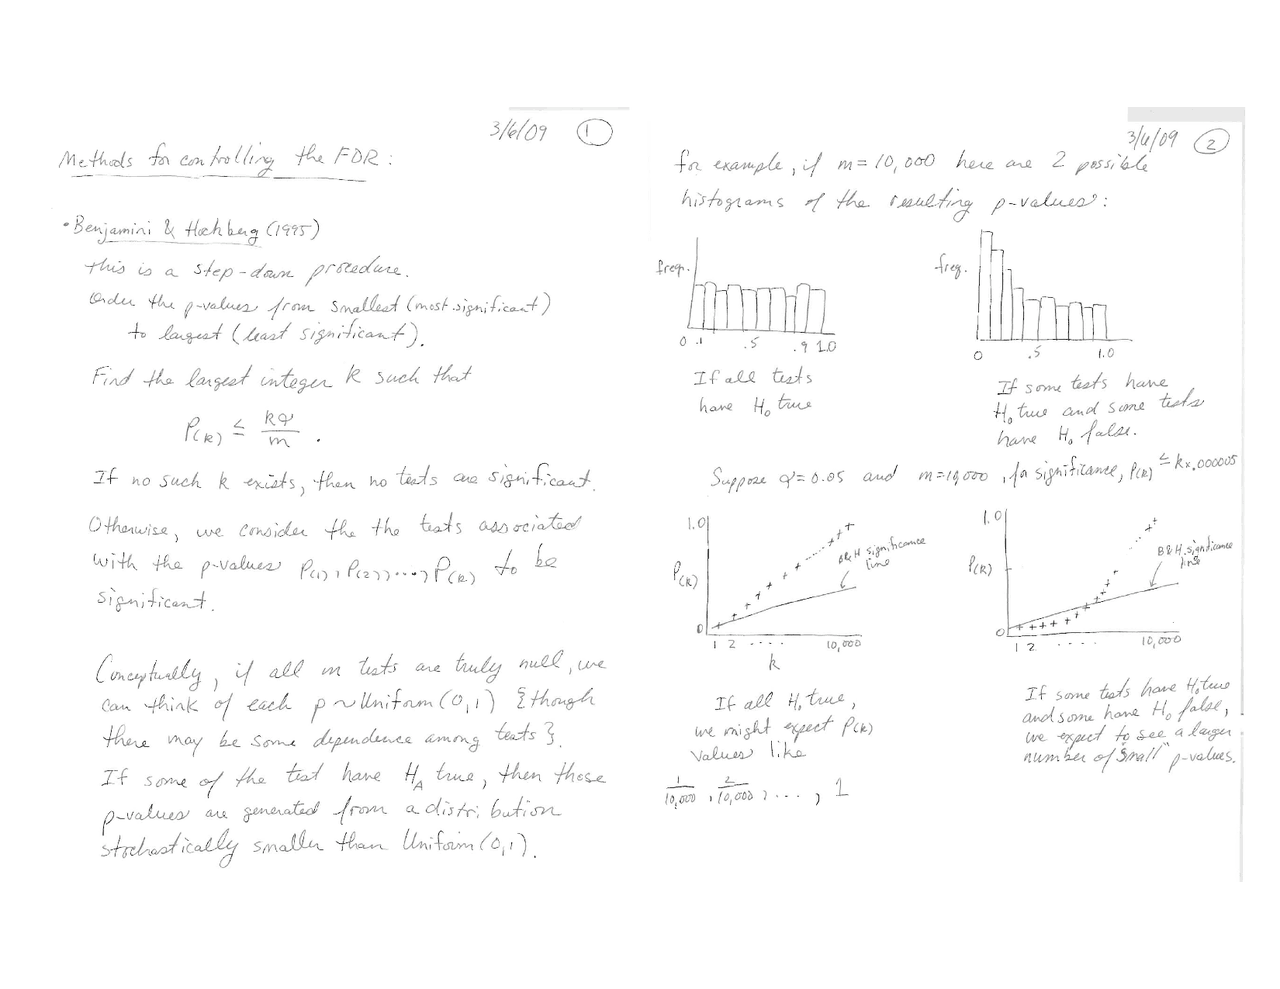 3/6/09 1
Methods for controlling the FDR:
• Benjamini & Hochberg (1995)
This is a step-down procedure.
Order the p-values from smallest (most significant)
to largest (least significant).
Find the largest integer k such that
P(k) ≤ kq/m .
If no such k exists, then no tests are significant.
Otherwise, we consider the the tests associated
with the p-values P(1), P(2), ...., P(k) to be
significant.
Conceptually, if all m tests are truly null, we
can think of each p ~ Uniform (0,1) {though
there may be some dependence among tests}.
If some of the test have H_A true, then those
p-values are generated from a distribution
stochastically smaller than Uniform (0,1).
3/6/09 2
for example, if m = 10,000 here are 2 possible
histograms of the resulting p-values:
freq.
0 .1 .5 .9 1.0
If all tests
have H₀ true
freq.
0 .5 1.0
If some tests have
H₀ true and some tests
have H₀ false.
Suppose q = 0.05 and m=10,000, for significance, P(k) ≤ k x .000005
1.0
P(k)
0
B&H significance
line
1 2 .... 10,000
k
If all H₀ true,
we might expect P(k)
values like
1/10,000 , 2/10,000 , ...., 1
1.0
P(k)
0
B&H significance
line
1 2 .... 10,000
If some tests have H₀ true
and some have H₀ false,
we expect to see a larger
number of "small" p-values.